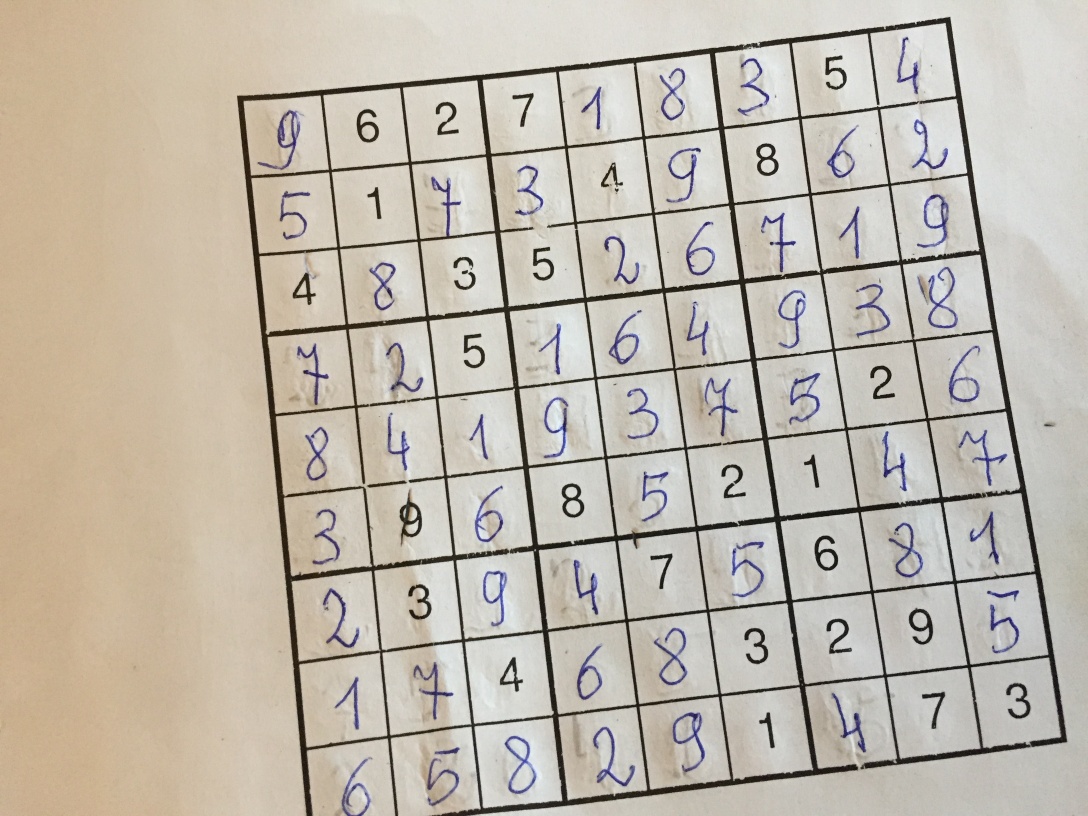 9 6 2 7 1 8 3 5 4
5 1 7 3 4 9 8 6 2
4 8 3 5 2 6 7 1 9
7 2 5 1 6 4 9 3 8
8 4 1 9 3 7 5 2 6
3 9 6 8 5 2 1 4 7
2 3 9 4 7 5 6 8 1
1 7 4 6 8 3 2 9 5
6 5 8 2 9 1 4 7 3